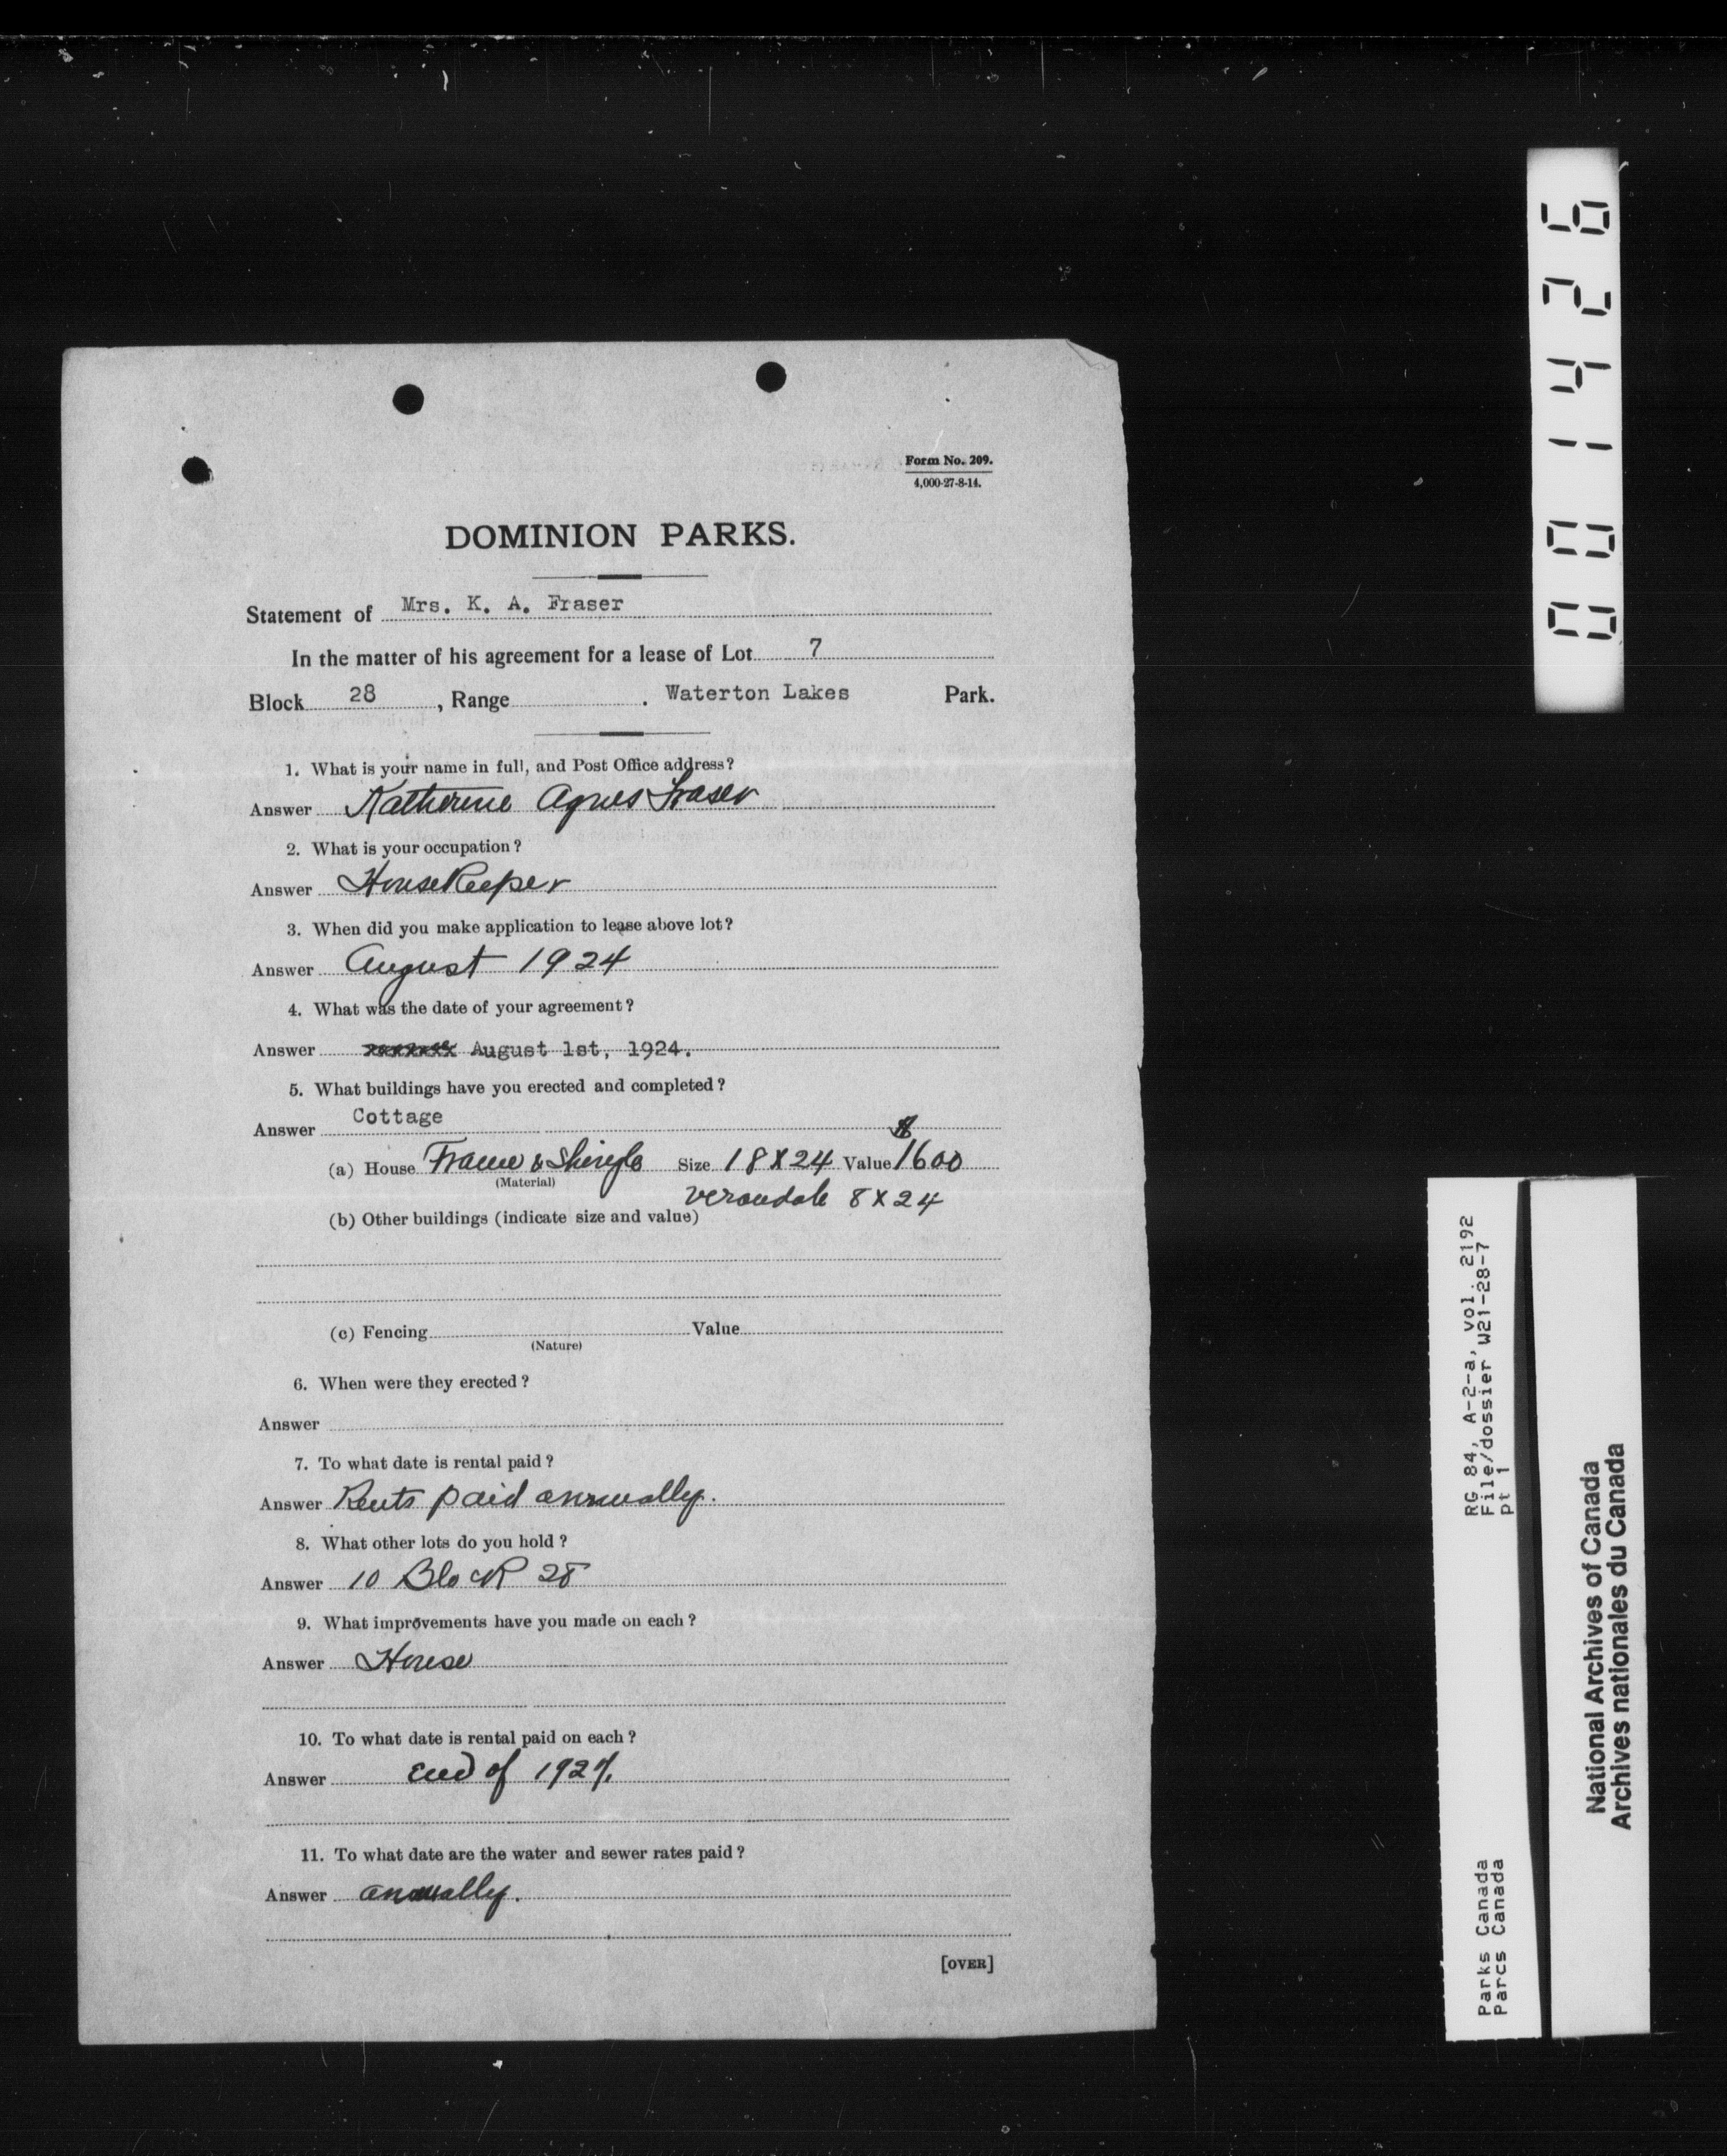 Form No. 209.
4,000-27-8-14.
DOMINION PARKS.
Statement of Mrs. K. A. Fraser
In the matter of his agreement for a lease of Lot 7
Block 28, Range . Waterton Lakes Park.
1. What is your name in full, and Post Office address?
Answer Katherine Agnes Fraser
2. What is your occupation?
Answer HouseKeeper
3. When did you make application to lease above lot?
Answer August 1924
4. What was the date of your agreement?
Answer August 1st, 1924.
5. What buildings have you erected and completed?
Answer Cottage
(a) House Frame & Shingle Size 18 X 24 Value $1600
(Material)
verandah 8 X 24
(b) Other buildings (indicate size and value)
(c) Fencing Value
(Nature)
6. When were they erected?
Answer
7. To what date is rental paid?
Answer Rents paid annually.
8. What other lots do you hold?
Answer 10 Block 28
9. What improvements have you made on each?
Answer House
10. To what date is rental paid on each?
Answer end of
11. To what date are the water and sewer rates paid?
Answer annually.
[OVER]
001426
RG 84, A-2-a, vol. 2192
File/dossier W21-28-7
pt 1
Parks Canada
Parcs Canada
National Archives of Canada
Archives nationales du Canada